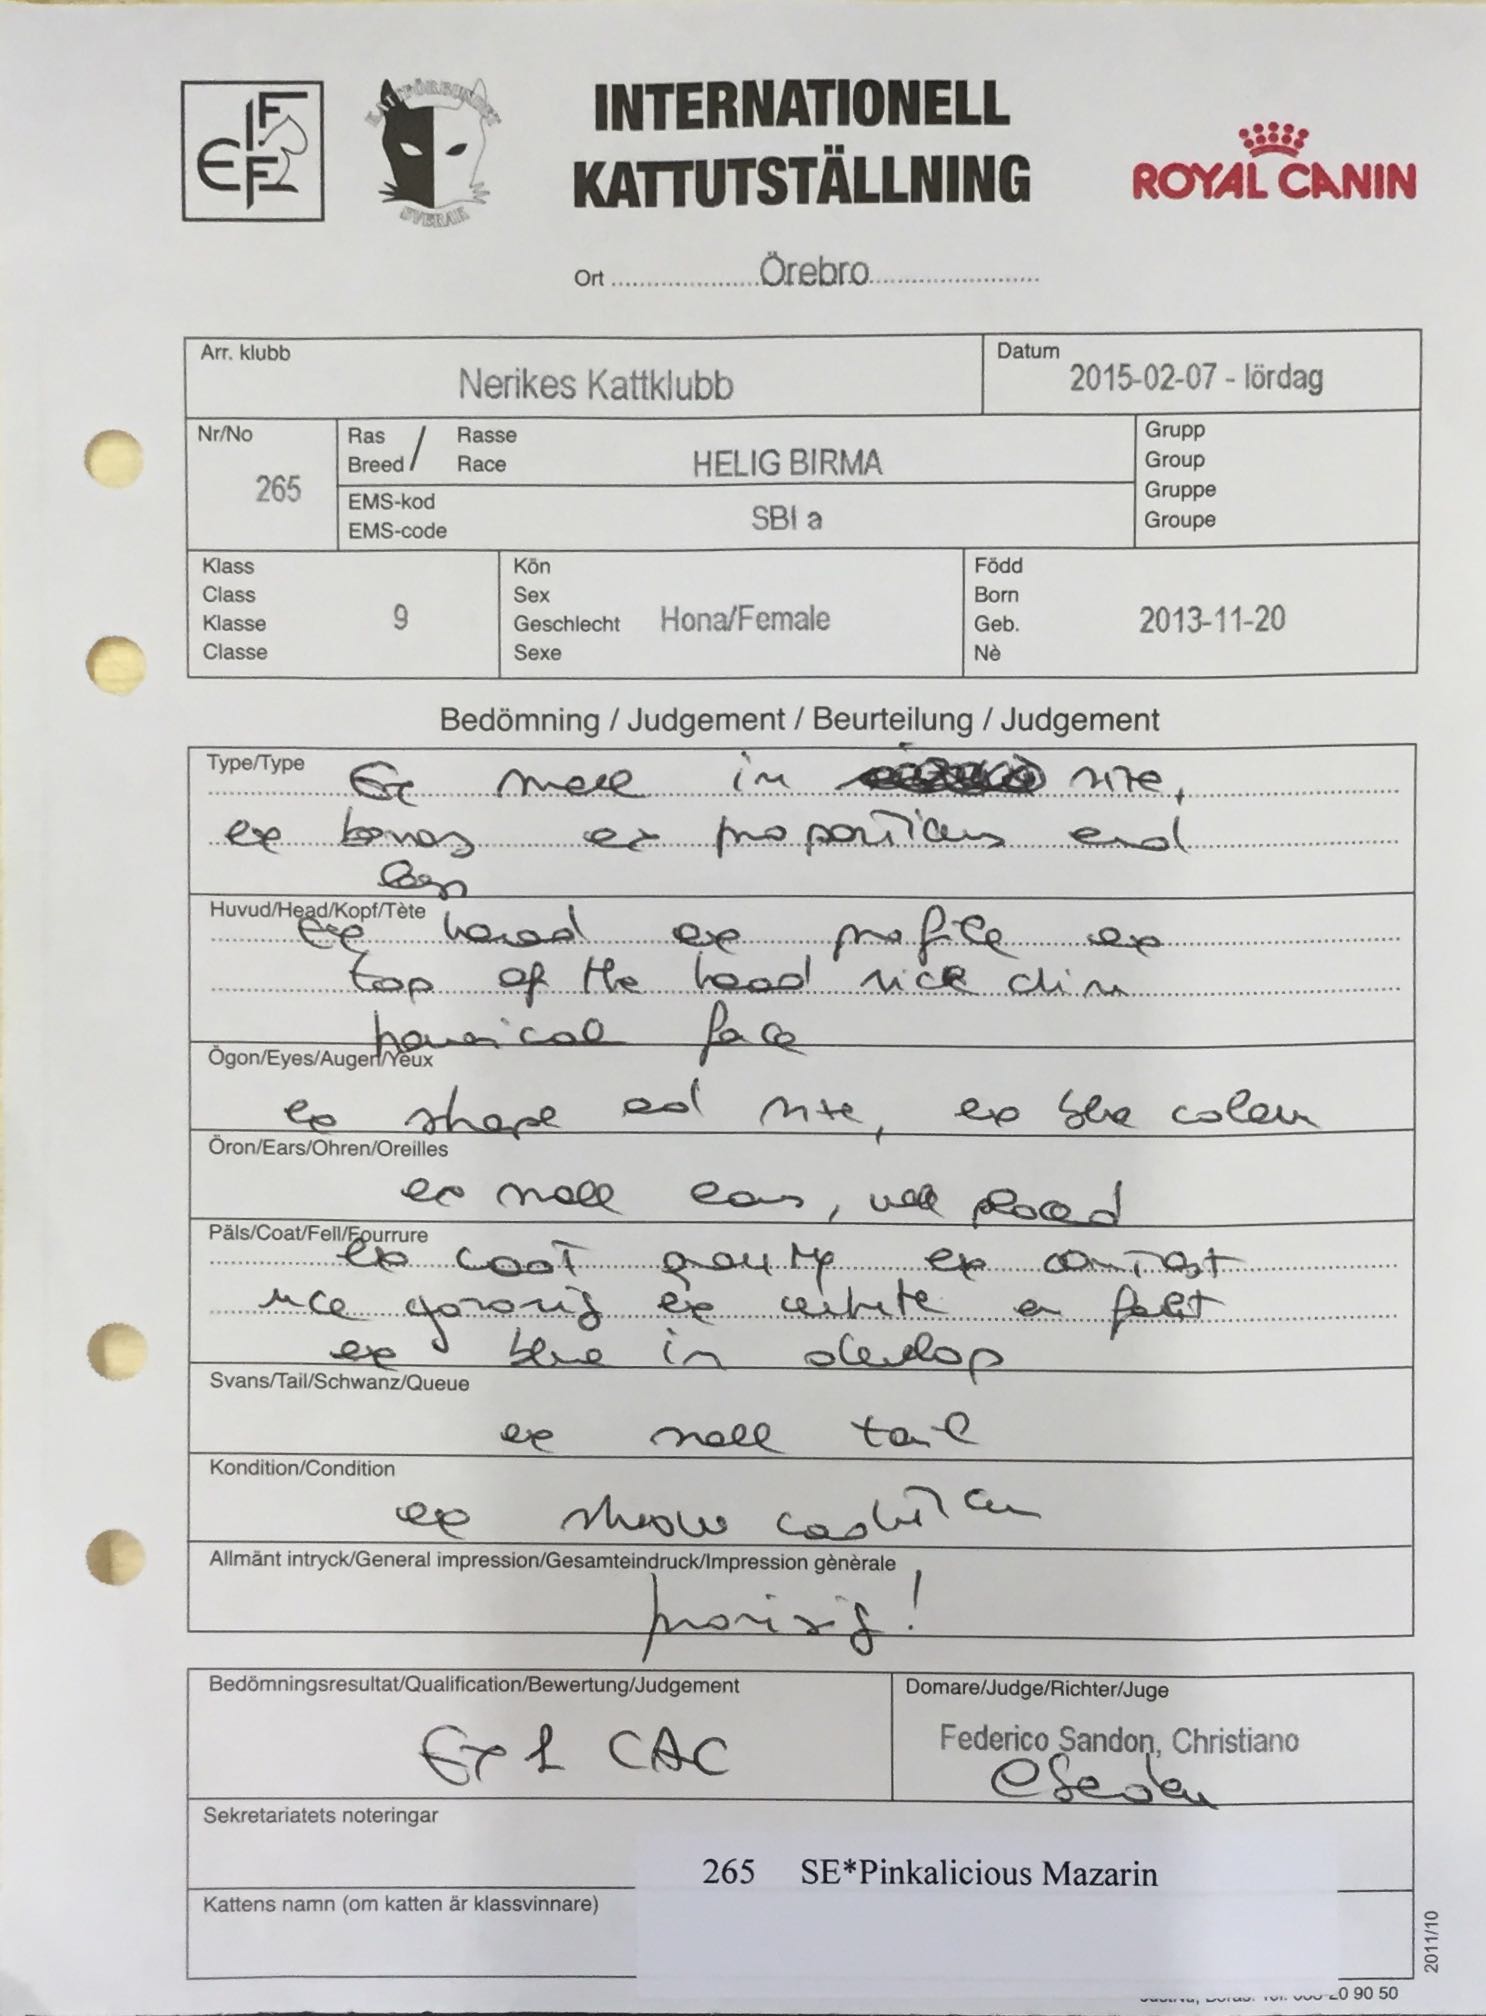 FIFe
KATTFÖRBUNDET
SVERAK
INTERNATIONELL
KATTUTSTÄLLNING
ROYAL CANIN
Ort Örebro
Arr. klubb
Nerikes Kattklubb
Datum
2015-02-07 - lördag
Nr/No
265
Ras / Rasse
Breed / Race
HELIG BIRMA
EMS-kod
EMS-code
SBI a
Grupp
Group
Gruppe
Groupe
Klass
Class
Klasse
Classe
9
Kön
Sex
Geschlecht
Sexe
Hona/Female
Född
Born
Geb.
Nè
2013-11-20
Bedömning / Judgement / Beurteilung / Judgement
Type/Type
Ex in size,
ex bones ex proportions and
legs
Huvud/Head/Kopf/Tète
Exe head exe profile exe
top of the head nice chin
face
Ögon/Eyes/Augen/Yeux
ex shape and size, exe blue colour
Öron/Ears/Ohren/Oreilles
ex small ears, well placed
Päls/Coat/Fell/Fourrure
ex coat quality exe contrast
nice exe white
exe blue in develop
Svans/Tail/Schwanz/Queue
exe tail
Kondition/Condition
exe show condition
Allmänt intryck/General impression/Gesamteindruck/Impression gènèrale
promising!
Bedömningsresultat/Qualification/Bewertung/Judgement
Ex 1 CAC
Domare/Judge/Richter/Juge
Federico Sandon, Christiano
Sekretariatets noteringar
265 SE*Pinkalicious Mazarin
Kattens namn (om katten är klassvinnare)
2011/10
20 90 50